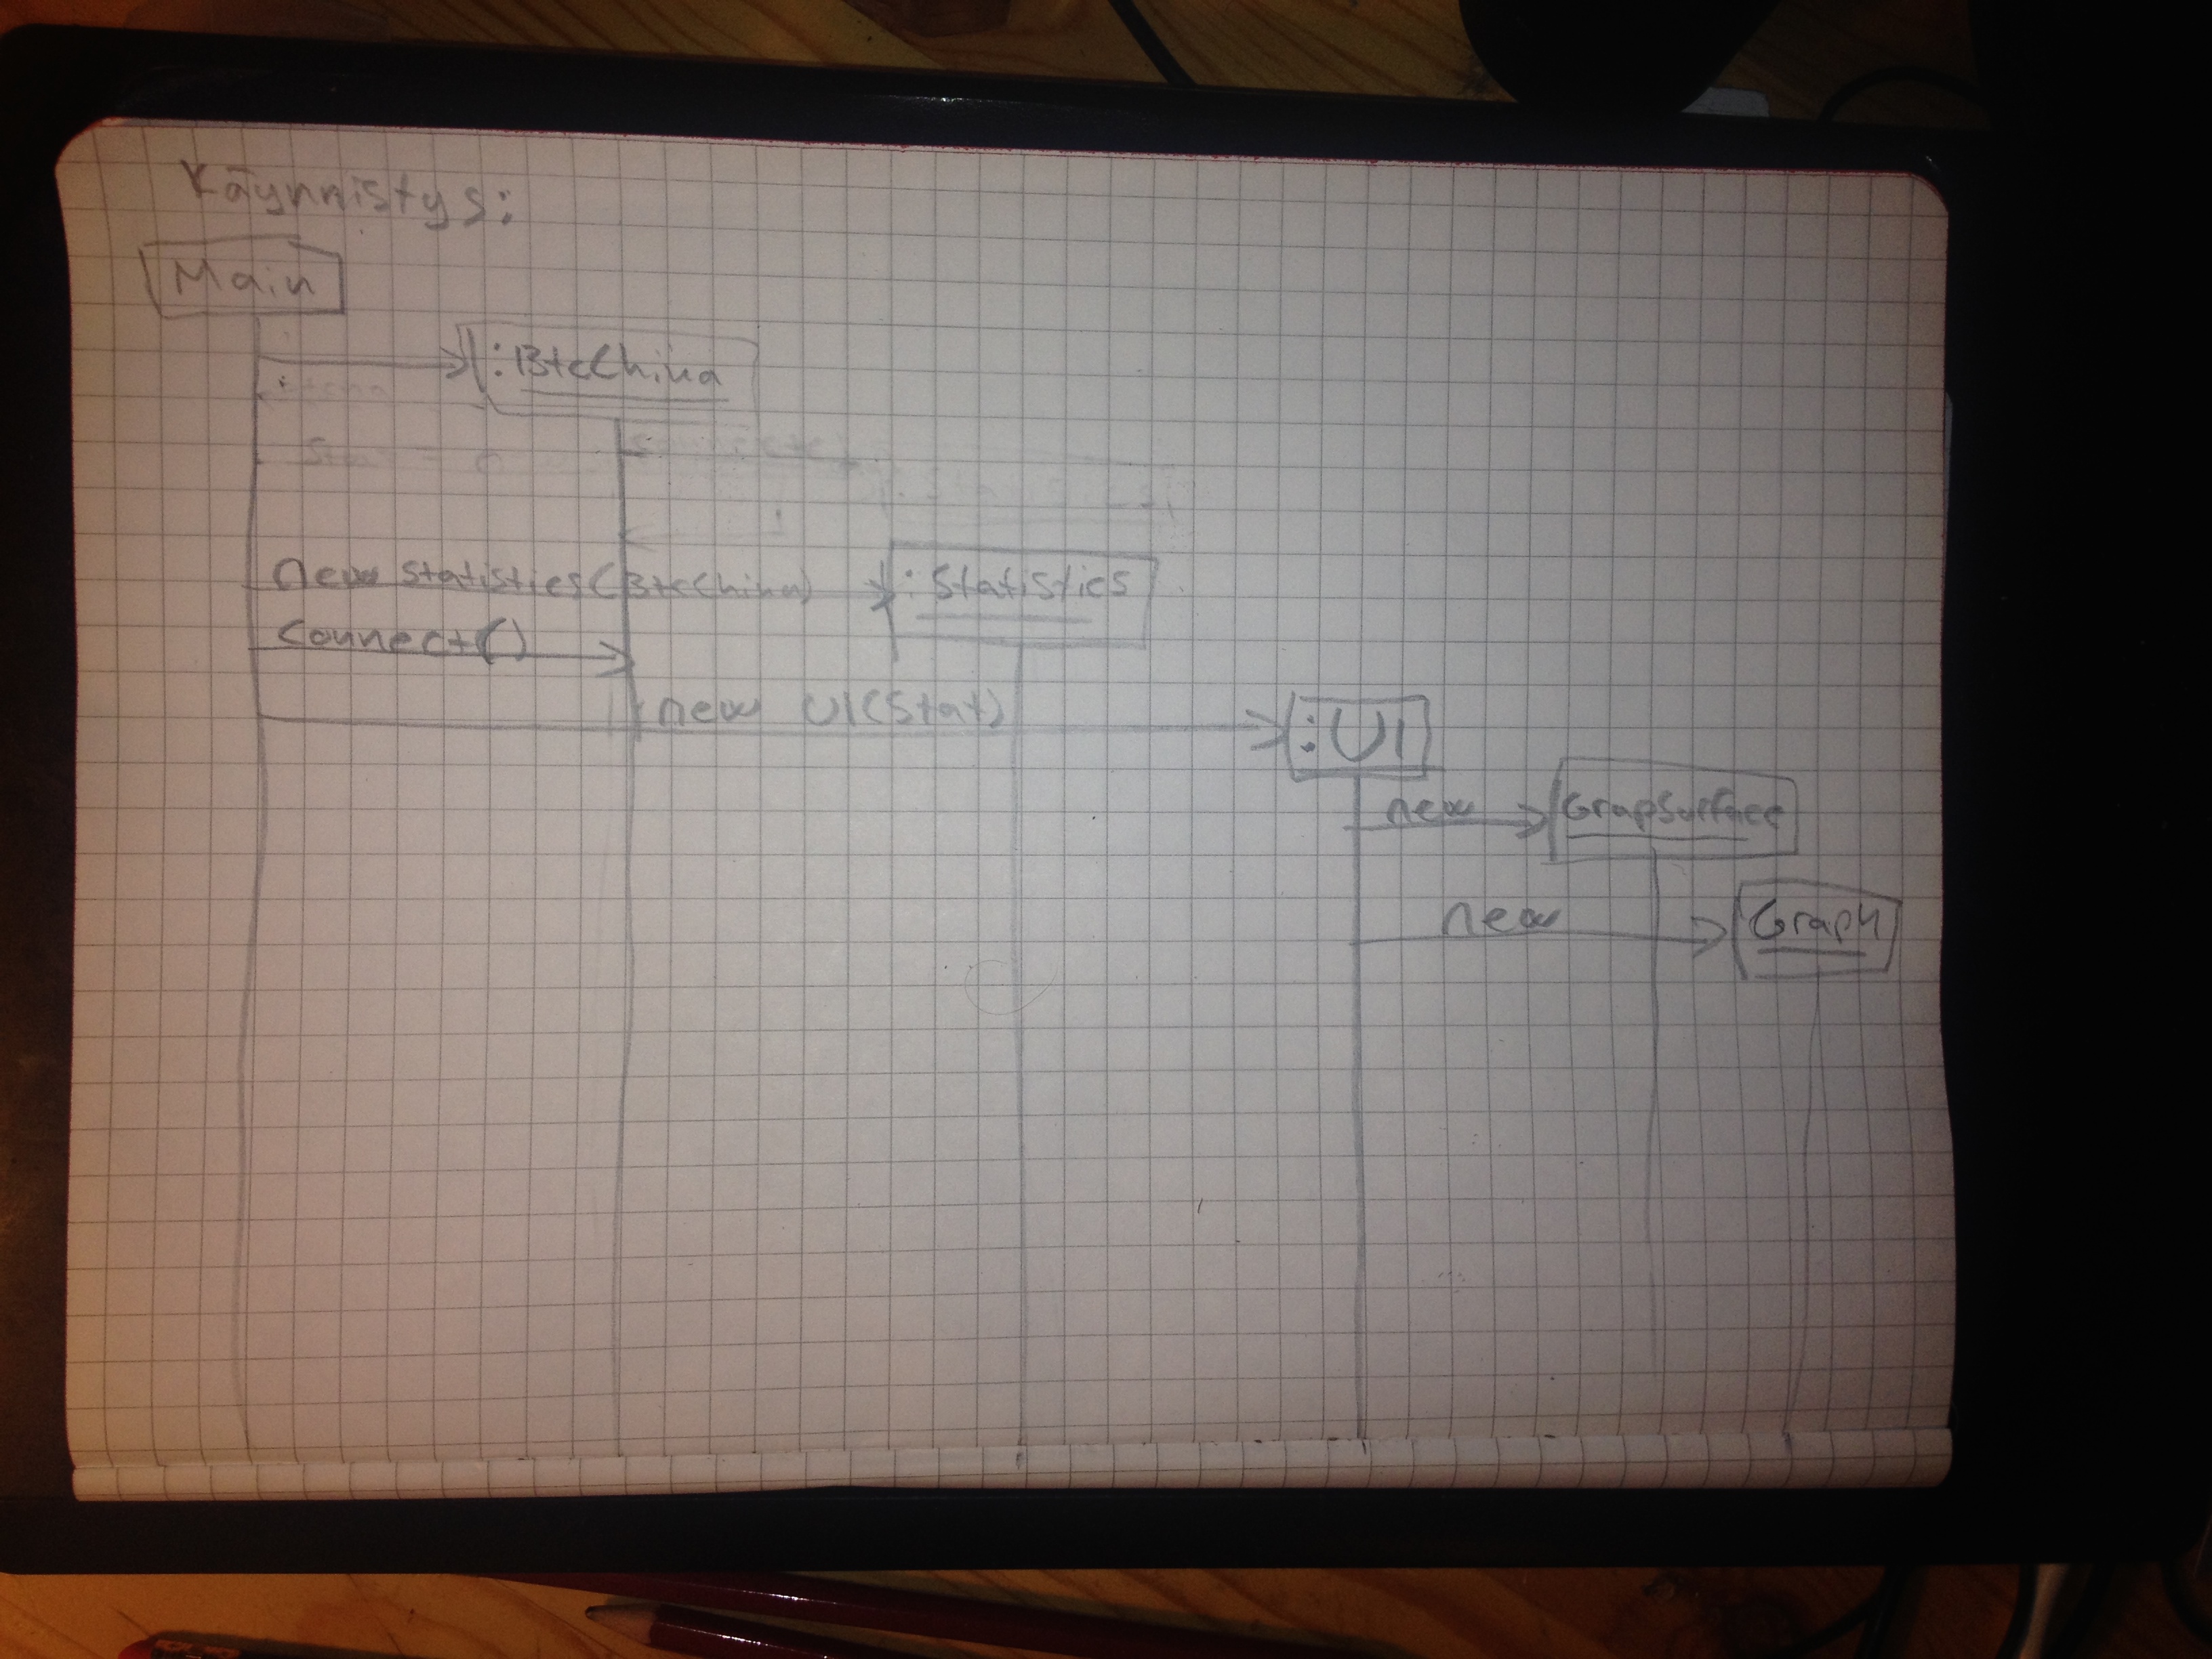 Käynnistys:
Main
:BtcChina
new Statistics(BtcChina)
:Statistics
Connect()
new UI(Stat)
:UI
new
GrapSurface
new
Graph